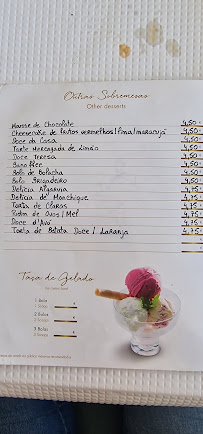 Outras Sobremesas
Other desserts
Mousse de Chocolate 4,50
Cheesecake de frutos vermelhos/lima/maracujá 4,50
Doce da Casa 4,50
Tarte Merengada de Limão 4,50
Doce Teresa 4,50
Bolo de Bolacha 4,50
Bolo Brigadeiro 4,50
Delícia Algarvia 4,75
Delícia de Monchique 4,75
Tarta de Claras 4,75
Pudim de Ovos/Mel 4,75
Doce d'Avó 4,75
Torta de Batata Doce/Laranja 4,75
Taça de Gelado
1 Bola
2 Bolas
3 Bolas